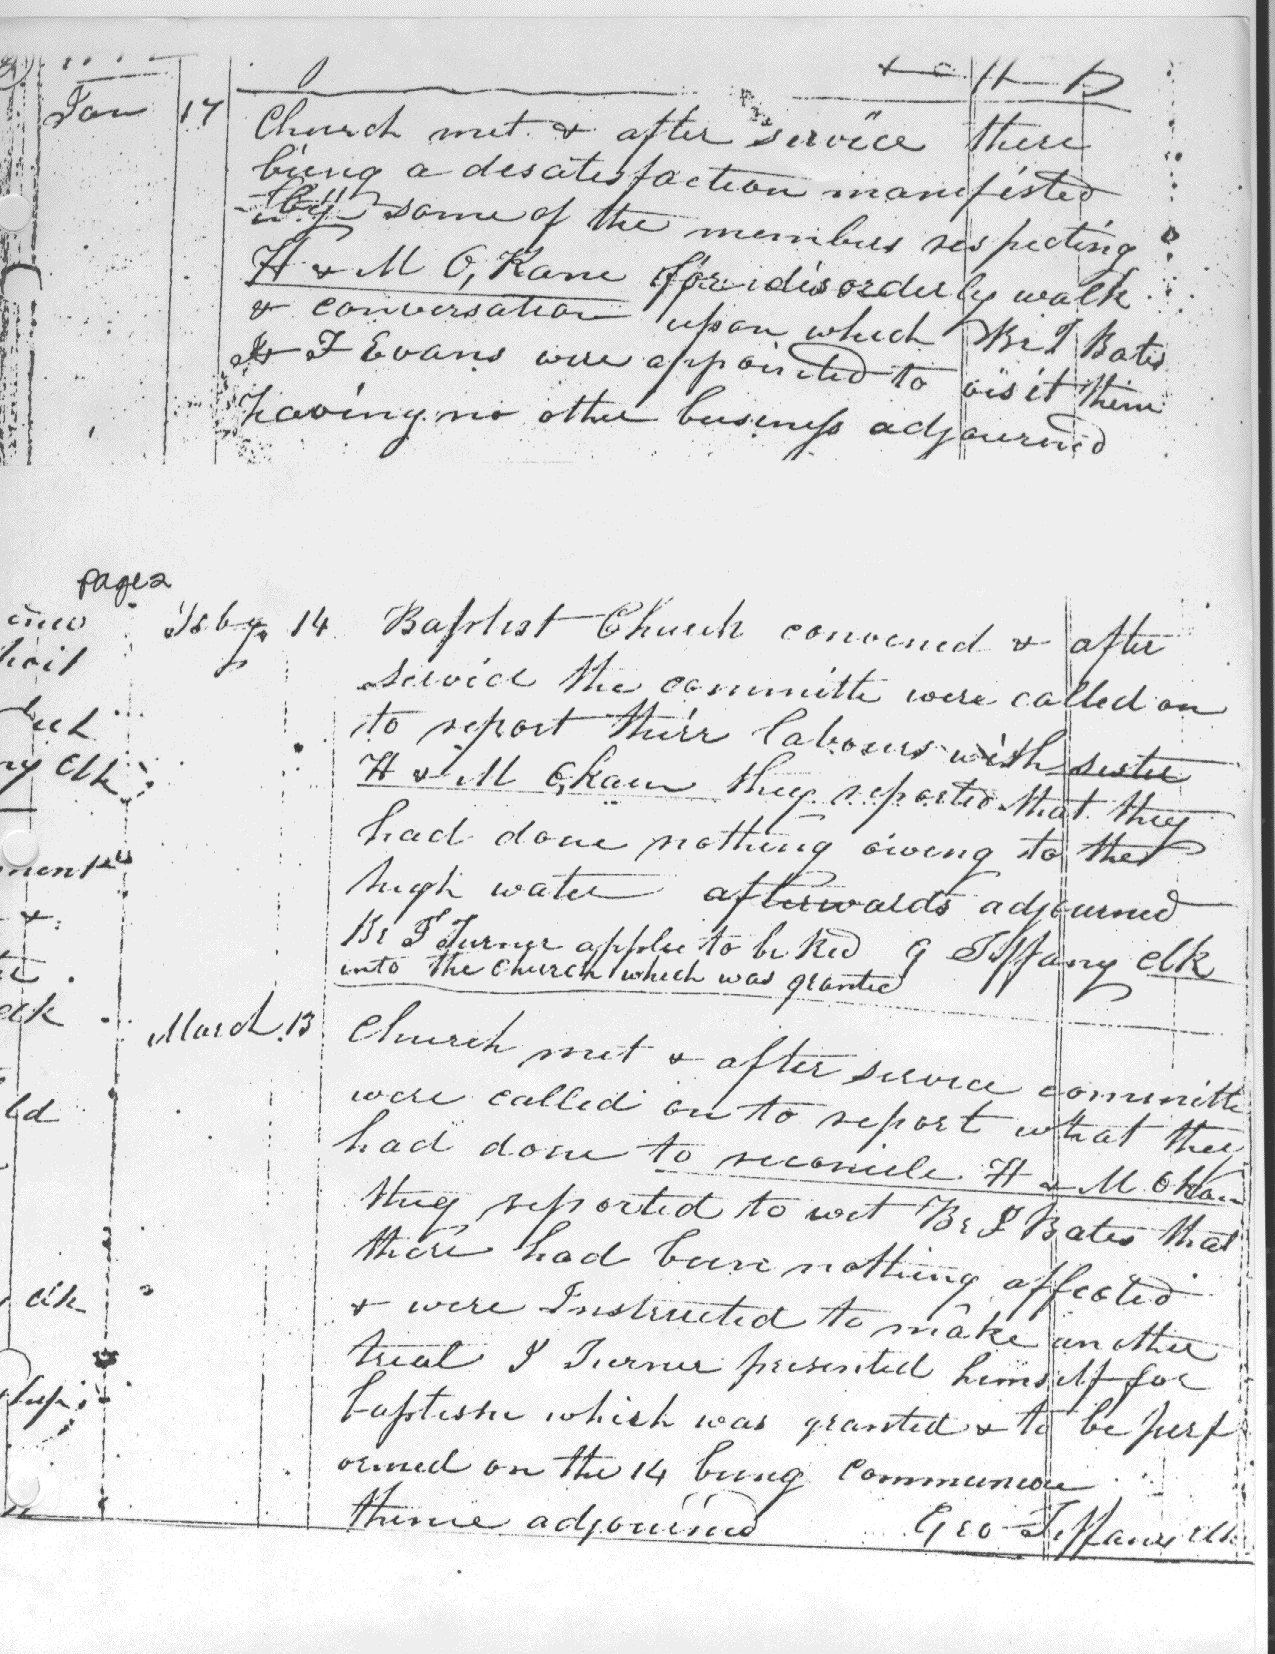 Jan 17 Church met & after service there
being a desatisfaction manifisted
by some of the members respecting
H & M O, Kane for disorderly walk
& conversation upon which Br T Bates
& T Evans were appointed to visit them
having no other business adjourned
page 2
Feby 14 Baptist Church convened & after
service the committe were called on
to report theirr labours with sister
H & M O,kain they reported that they
had done nothing owing to the
high water afterwards adjourned
Br T Turner applee to be Red G Tiffany clk
into the church which was granted
March 13 Church met & after service committe
were called on to report what they
had done to reconcile H & M Okan
they reported to wit Br J Bates that
there had been nothing affected
& were Instructed to make another
trial J Turner presented himself for
baptism which was granted & to be perf
ormed on the 14 being communion
thence adjourned Geo Tiffany clk
ny Clk
clk
ld
clk